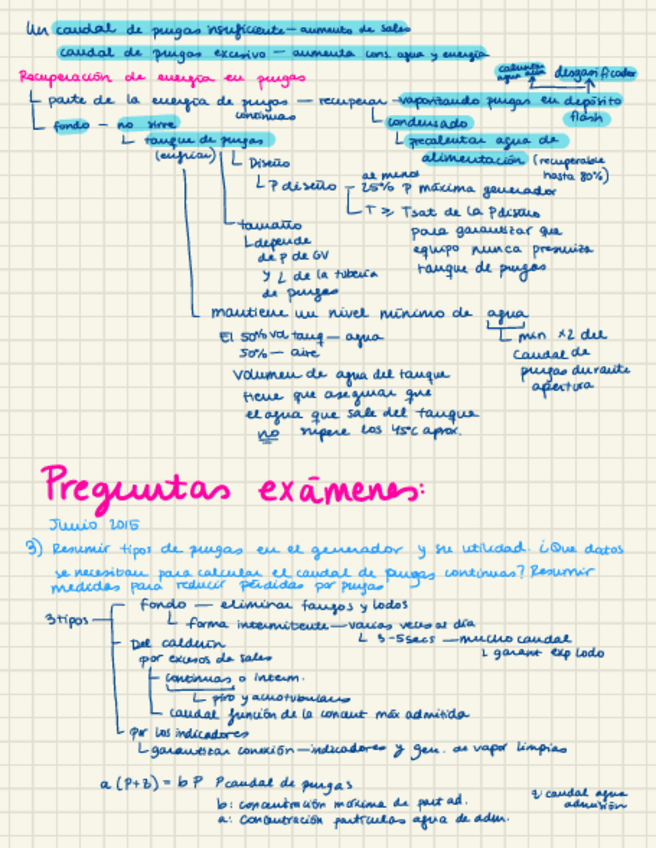 Un caudal de purgas insuficiente — aumento de sales
caudal de purgas excesivo — aumenta cons. agua y energía
Recuperación de energía en purgas
calentar agua
desgasificador
parte de la energía de purgas continuas — recuperar — vaporizando purgas en depósito flash
condensado
precalentar agua de alimentación (recuperable hasta 80%)
fondo — no sirve
tanque de purgas
(enfriar)
Diseño
P diseño
al menos
25% P máxima generador
T ≥ Tsat de la P diseño
para garantizar que
equipo nunca presuriza
tanque de purgas
tamaño
depende
de P de GV
y L de la tubería
de purgas
mantiene un nivel mínimo de agua
min x2 del
caudal de
purgas durante
apertura
El 50% vol tanq — agua
50% — aire
Volumen de agua del tanque
tiene que asegurar que
el agua que sale del tanque
no supere los 45ºC aprox.
Preguntas exámenes:
Junio 2015
3) Resumir tipos de purgas en el generador y su utilidad. ¿Que datos
se necesitan para calcular el caudal de purgas continuas? Resumir
medidas para reducir pérdidas por purgas
3 tipos
fondo — eliminar fangos y lodos
forma intermitente — varias veces al día
3-5 secs — mucho caudal
garant exp lodo
Del calderín
por excesos de sales
continuas o interm.
piro y acuotubulares
caudal función de la concent máx admitida
por los indicadores
garantizar conexión — indicadores y gen. de vapor limpias
a (P+z) = b P P caudal de purgas
b: concentración máxima de part ad.
a: concentración partículas agua de adm.
q caudal agua
admisión